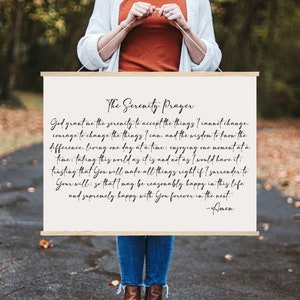 The Serenity Prayer
God grant me the serenity to accept the things I cannot change,
courage to change the things I can, and the wisdom to know the
difference, living one day at a time; enjoying one moment at a
time; taking this world as it is and not as I would have it;
trusting that You will make all things right if I surrender to
Your will; so that I may be reasonably happy in this life
and supremely happy with You forever in the next.
-Amen